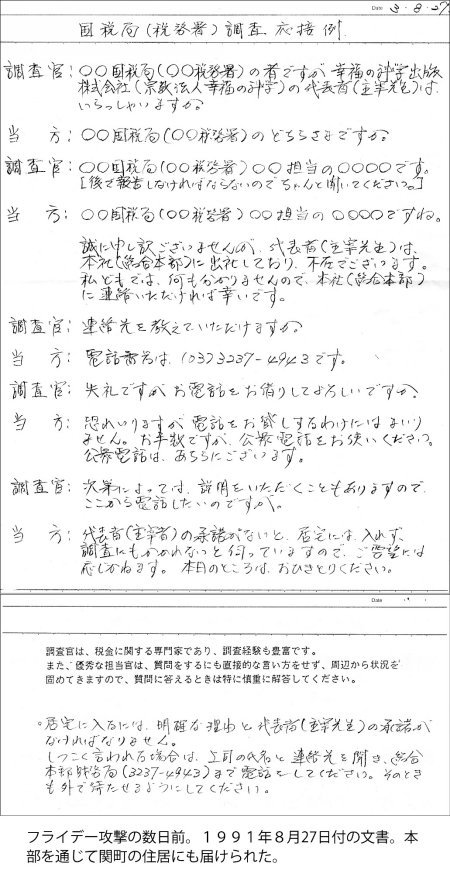 Date 3・8・27
国税局(税務署)調査 応接例
調査官: 〇〇国税局(〇〇税務署)の者ですが 幸福の科学出版
株式会社(宗教法人幸福の科学)の代表者(主宰先生)は、
いらっしゃいますか?
当 方: 〇〇国税局(〇〇税務署)のどちらさまですか?
調査官: 〇〇国税局(〇〇税務署)〇〇担当の〇〇〇〇です。
[後で報告しなければならないのでちゃんと聞いてください。]
当 方: 〇〇国税局(〇〇税務署)〇〇担当の〇〇〇〇ですね。
誠に申し訳ございませんが、代表者(主宰先生)は、
本社(総合本部)に出社しており、不在でございます。
私どもでは、何も分かりませんので、本社(総合本部)
に連絡いただければ幸いです。
調査官: 連絡先を教えていただけますか?
当 方: 電話番号は、(03)3237-4943です。
調査官: 失礼ですが お電話をお借りしてよろしいですか?
当 方: 恐れいりますが 電話をお貸しするわけにはまいり
ません。お手数ですが、公衆電話をお使いください。
公衆電話は、あちらにございます。
調査官: 次第によっては、説明をいただくこともありますので、
ここから電話したいのですが。
当 方: 代表者(主宰者)の承諾がないと、居宅には、入れず、
調査にもかかれないと伺っていますので、ご要望には
応じかねます。本日のところは、おひきとりください。
Date
調査官は、税金に関する専門家であり、調査経験も豊富です。
また、優秀な担当官は、質問をするにも直接的な言い方をせず、周辺から状況を
固めてきますので、質問に答えるときは特に慎重に解答してください。
。居宅に入るには、明確な理由と代表者(主宰先生)の承諾が
なければなりません。
しつこく言われる場合は、上司の氏名と連絡先を聞き、総合
本部財務局(3237-4943)まで電話をしてください。そのとき
も外で待たせるようにしてください。
フライデー攻撃の数日前。1991年8月27日付の文書。本
部を通じて関町の住居にも届けられた。